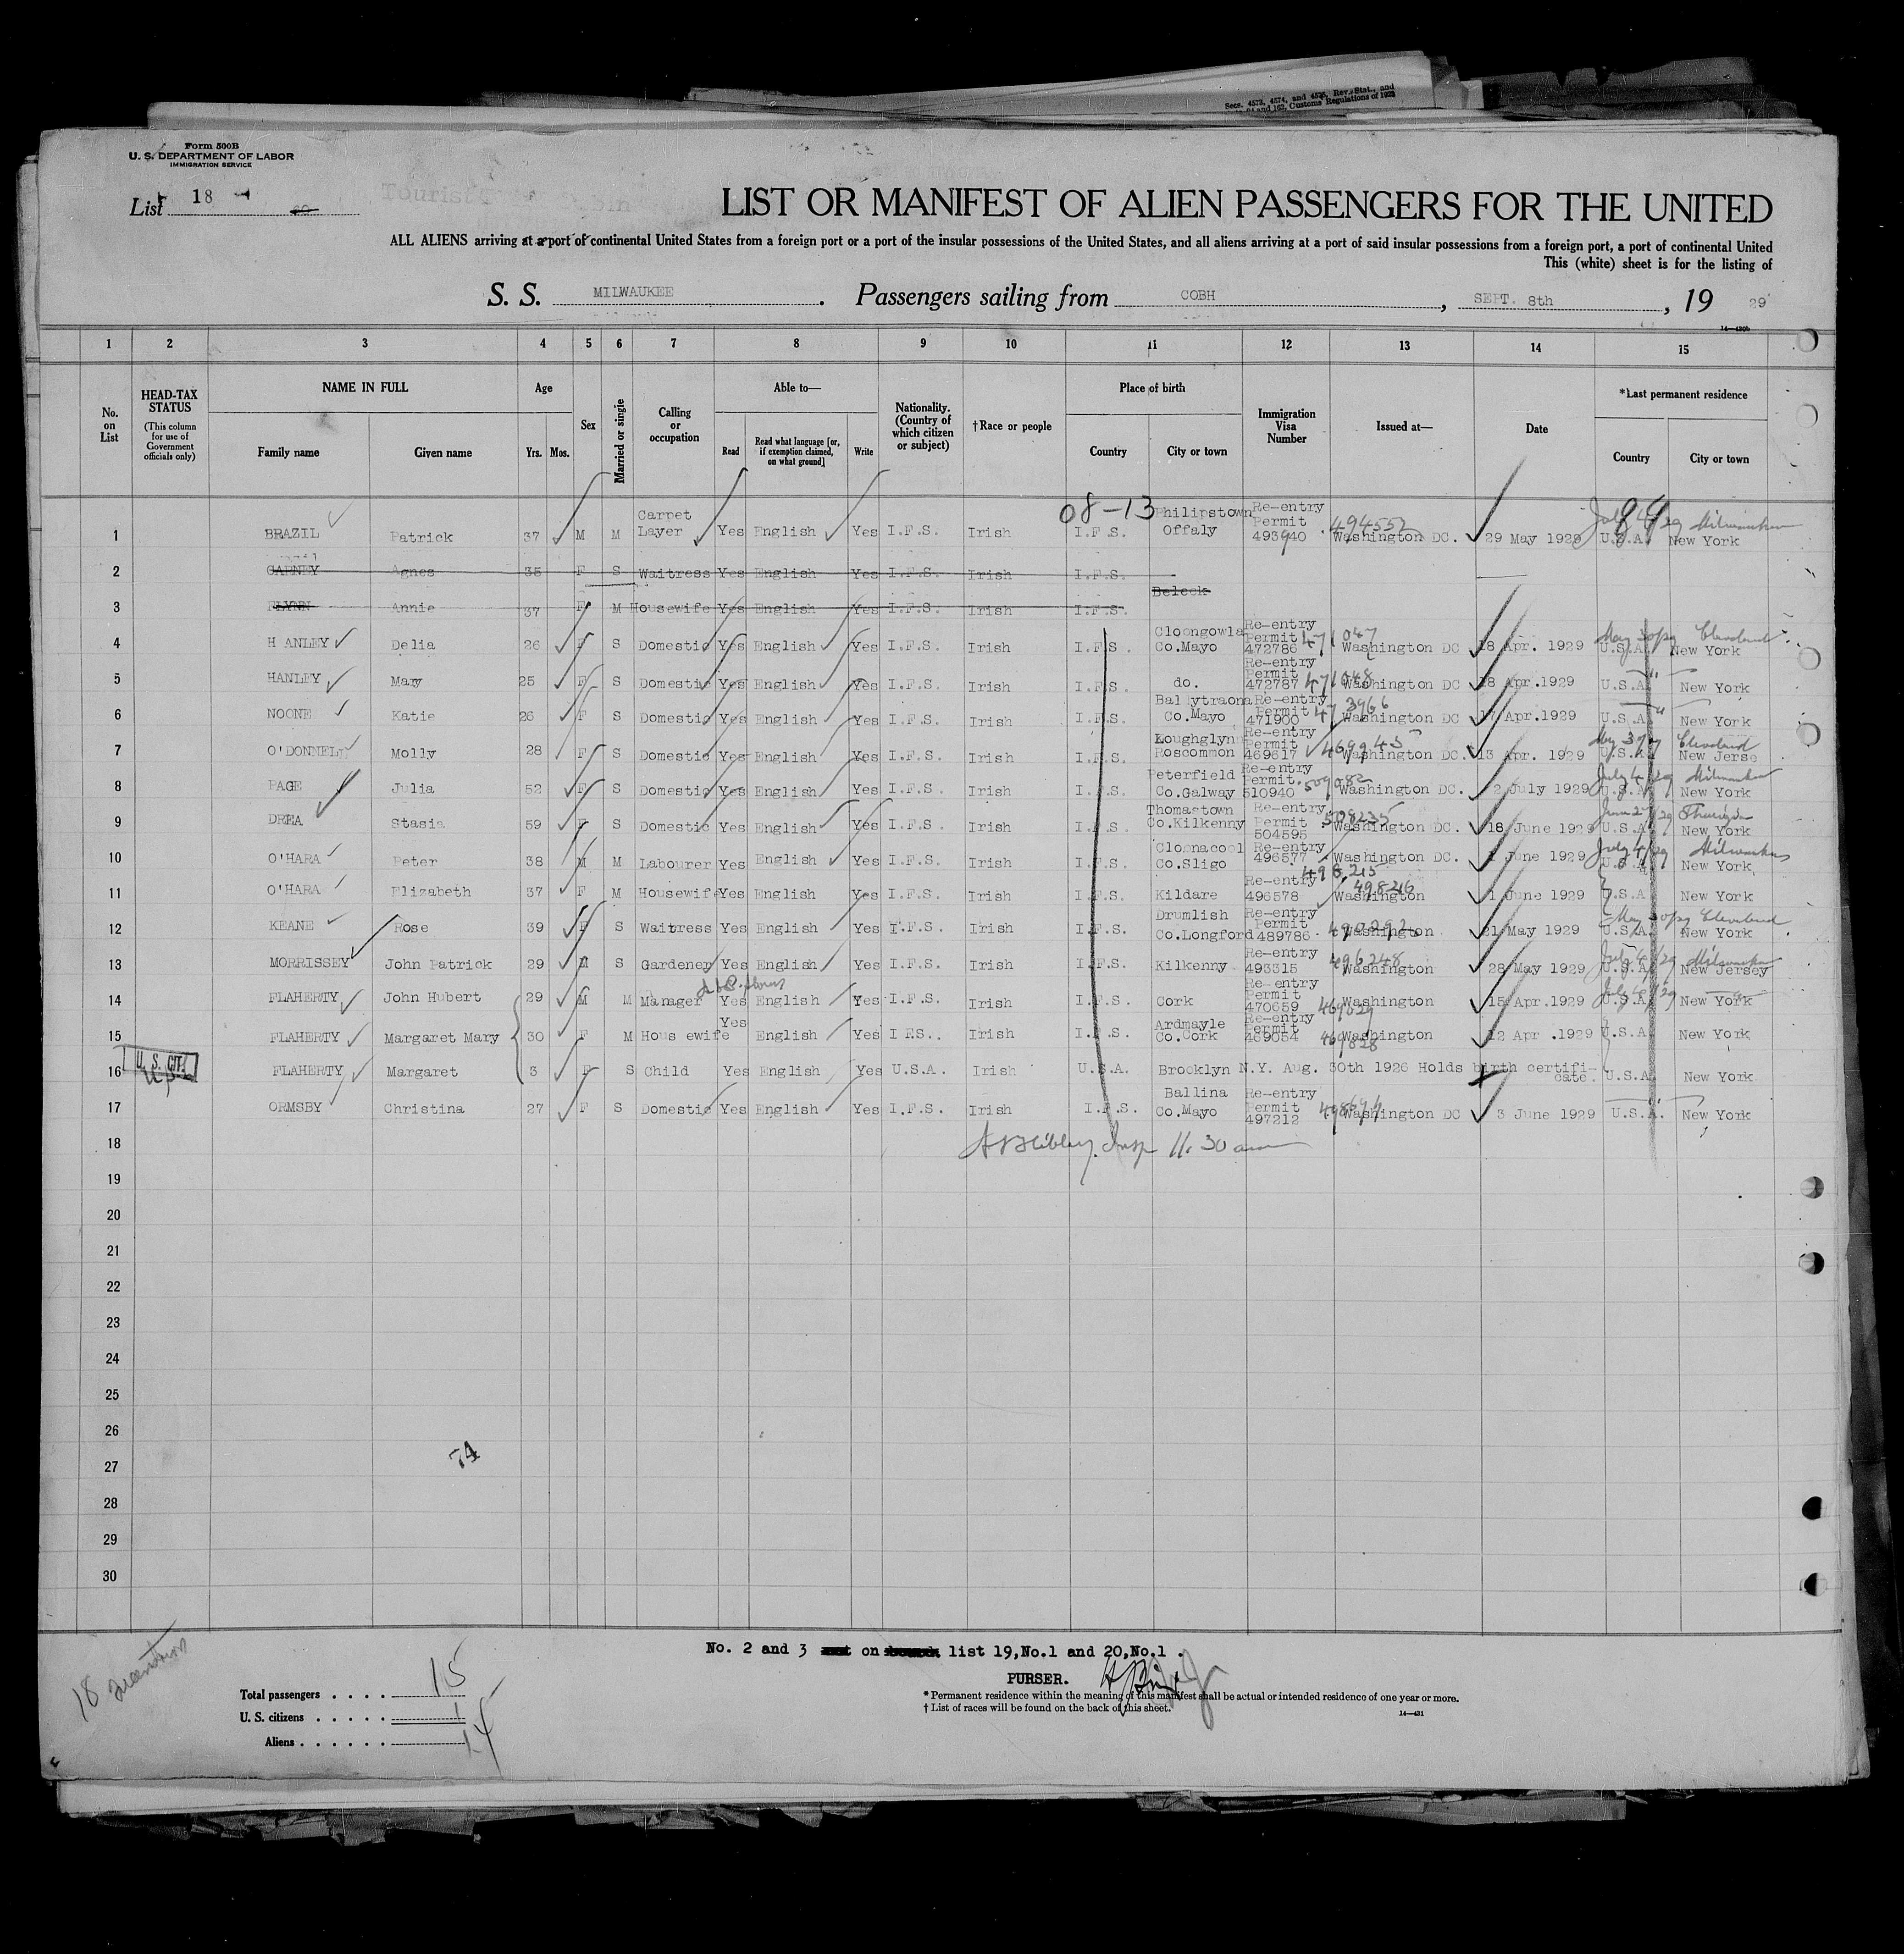 Secs. 4573, 4574, and 4575, Rev. Stat., and
and 162, Customs Regulations of 1923
Form 500B
U. S. DEPARTMENT OF LABOR
IMMIGRATION SERVICE
List 18
Tourist
LIST OR MANIFEST OF ALIEN PASSENGERS FOR THE UNITED
ALL ALIENS arriving at a port of continental United States from a foreign port or a port of the insular possessions of the United States, and all aliens arriving at a port of said insular possessions from a foreign port, a port of continental United
This (white) sheet is for the listing of
S. S. MILWAUKEE . Passengers sailing from COBH , SEPT. 8th , 19 29
1 2 3 4 5 6 7 8 9 10 11 12 13 14 15
No. on List
HEAD-TAX STATUS (This column for use of Government officials only)
NAME IN FULL Family name Given name
Age Yrs. Mos.
Sex
Married or single
Calling or occupation
Able to— Read Read what language [or, if exemption claimed, on what ground] Write
Nationality. (Country of which citizen or subject)
†Race or people
Place of birth Country City or town
Immigration Visa Number
Issued at—
Date
*Last permanent residence Country City or town
08-13
1 BRAZIL Patrick 37 M M Carpet Layer Yes English Yes I.F.S. Irish I.F.S. Philipstown Offaly Re-entry Permit 493940 494552 Washington DC. 29 May 1929 July 4/29 Milwaukee U.S.A. New York
2 CARNEY Agnes 35 F S Waitress Yes English Yes I.F.S. Irish I.F.S.
3 FLYNN Annie 37 F M Housewife Yes English Yes I.F.S. Irish I.F.S. Beleek
4 H ANLEY Delia 26 F S Domestic Yes English Yes I.F.S. Irish I.F.S. Cloongowla Co.Mayo Re-entry Permit 472786 471047 Washington DC 18 Apr. 1929 May 30/29 Cleveland U.S.A. New York
5 HANLEY Mary 25 F S Domestic Yes English Yes I.F.S. Irish I.F.S. do. Re-entry Permit 472787 471048 Washington DC 18 Apr.1929 U.S.A. " New York
6 NOONE Katie 26 F S Domestic Yes English Yes I.F.S. Irish I.F.S. Ballytraona Co.Mayo Re-entry Permit 471900 473966 Washington DC 17 Apr.1929 U.S.A. " New York
7 O'DONNELL Molly 28 F S Domestic Yes English Yes I.F.S. Irish I.F.S. Loughglyn Roscommon Re-entry Permit 469617 469945 Washington DC. 13 Apr. 1929 Cleveland U.S.A. New Jerse
8 PAGE Julia 52 F S Domestic Yes English Yes I.F.S. Irish I.F.S. Peterfield Co.Galway Re-entry Permit. 510940 509082 Washington DC. 2 July 1929 July 4/29 Milwaukee U.S.A. New York
9 DREA Stasia 59 F S Domestic Yes English Yes I.F.S. Irish I.F.S. Thomastown Co.Kilkenny Re-entry Permit 504595 508235 Washington DC. 18 June 1929 June 27/29 Thuringia U.S.A. New York
10 O'HARA Peter 38 M M Labourer Yes English Yes I.F.S. Irish I.F.S. Cloonacool Co.Sligo Re-entry 496577 498215 Washington DC. 1 June 1929 July 4/29 Milwaukee U.S.A. New York
11 O'HARA Elizabeth 37 F M Housewife Yes English Yes I.F.S. Irish I.F.S. Kildare Re-entry 496578 498216 Washington 1 June 1929 U.S.A New York
12 KEANE Rose 39 F S Waitress Yes English Yes I.F.S. Irish I.F.S. Drumlish Co.Longford Re-entry Permit 489786 490292 Washington 31 May 1929 May 30/29 Cleveland U.S.A. New York
13 MORRISSEY John Patrick 29 M S Gardener Yes English Yes I.F.S. Irish I.F.S. Kilkenny Re-entry 493315 496248 Washington 28 May 1929 July 4/29 Milwaukee U.S.A. New Jersey
14 FLAHERTY John Hubert 29 M M Manager Yes English Yes I.F.S. Irish I.F.S. Cork Re-entry Permit 470659 469829 Washington 15 Apr.1929 July 4/29 U.S.A. New York
15 FLAHERTY Margaret Mary 30 F M Hous ewife Yes English Yes I FS.. Irish I.F.S. Ardmayle Co.Cork Re-entry Permit 469054 469828 Washington 12 Apr .1929 U.S.A. New York
U. S. CIT.
16 FLAHERTY Margaret 3 F S Child Yes English Yes U.S.A. Irish U.S.A. Brooklyn N.Y. Aug. 30th 1926 Holds birth certifi-cate. U.S.A. New York
17 ORMSBY Christina 27 F S Domestic Yes English Yes I.F.S. Irish I.F.S. Ballina Co.Mayo Re-entry Permit 497212 Washington DC 3 June 1929 U.S.A. New York
18 Insp 11:30 am
19
20
21
22
23
24
25
26
27
28
29
30
74
No. 2 and 3 on list 19,No.1 and 20,No.1 .
PURSER.
Total passengers . . . . 15
U. S. citizens . . . . . 1
Aliens . . . . . . 14
* Permanent residence within the meaning of this manifest shall be actual or intended residence of one year or more.
† List of races will be found on the back of this sheet.
14—431
18